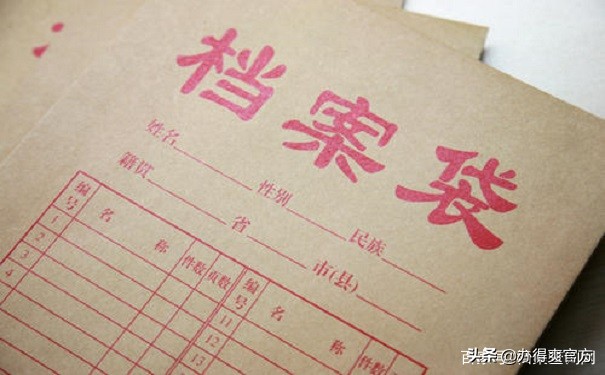 档案袋
姓名 性别 民族
籍贯 省 市(县)
编号 名 称 件数 页数 编号 名 称 件数
1 11
2 12
3 13
4
头条 @办得爽官方